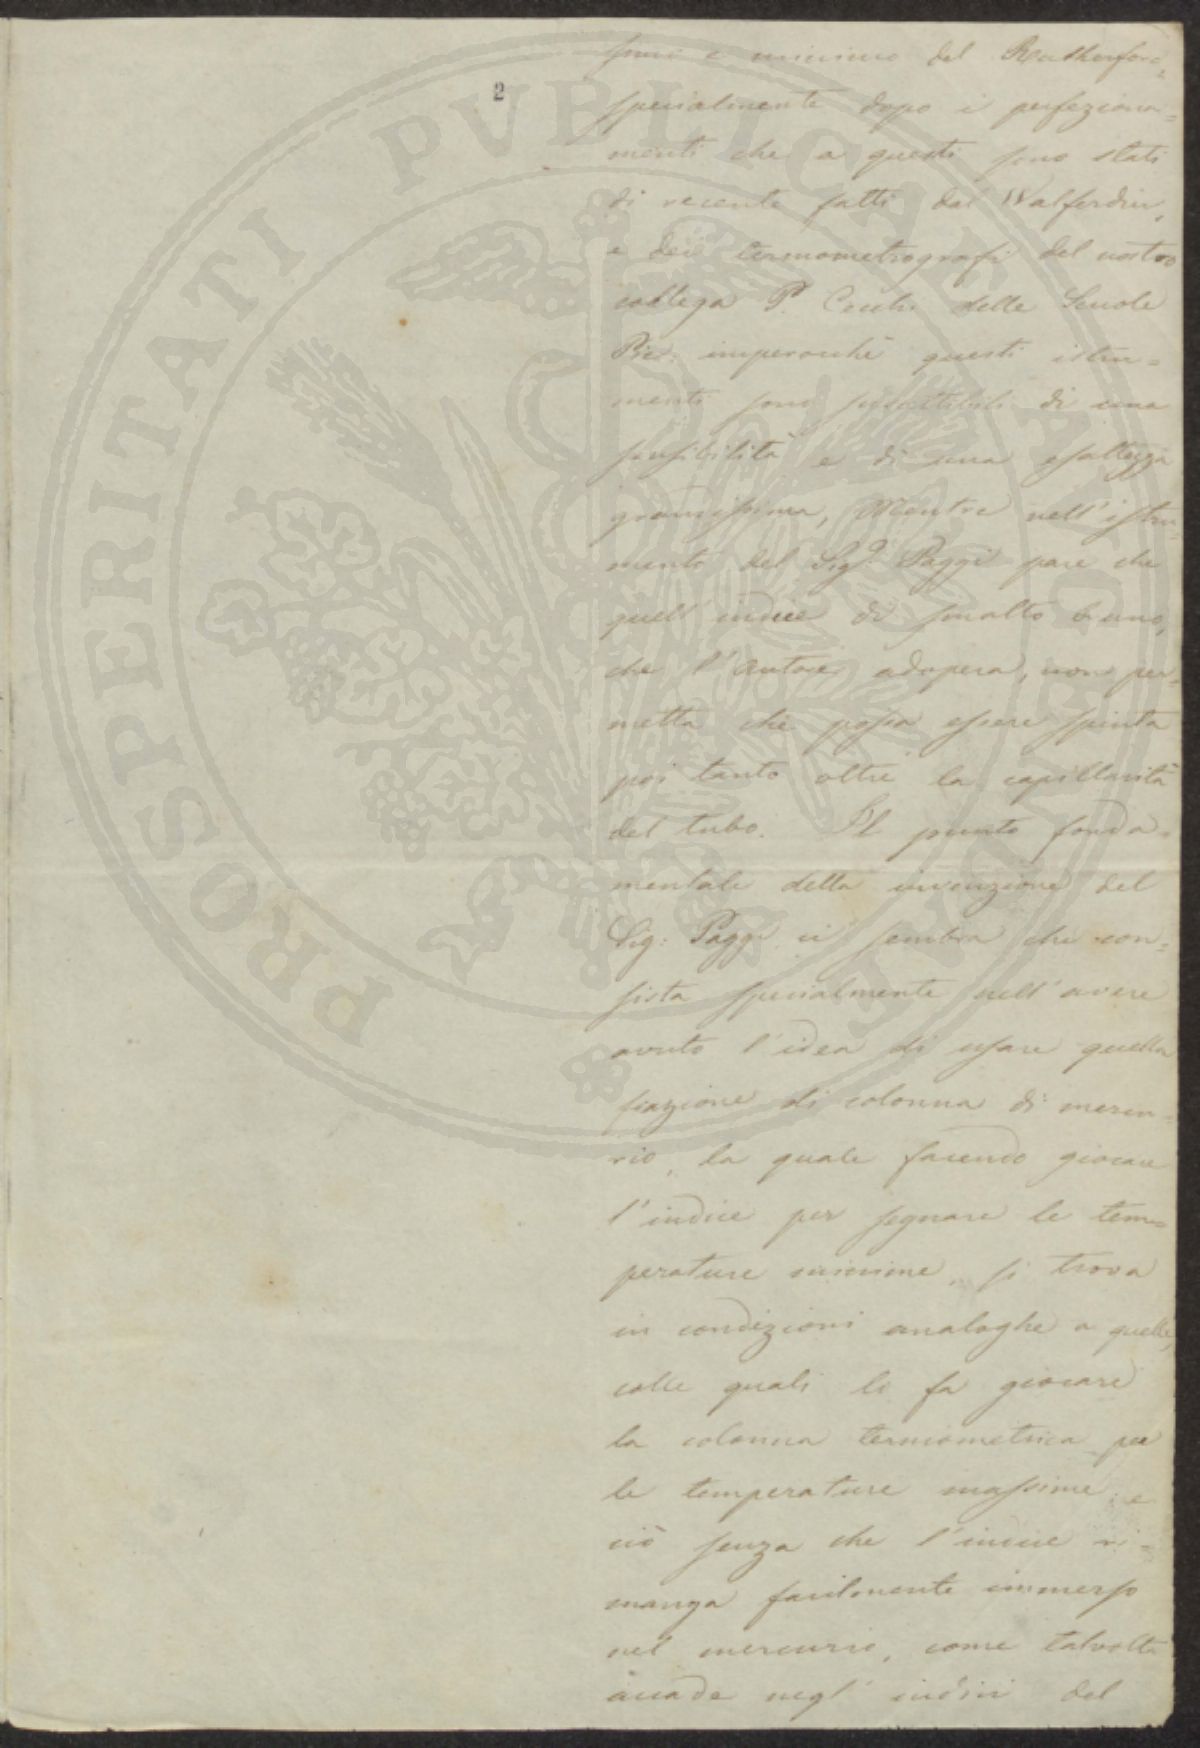 2
simo e minimo del Rutherford,
specialmente dopo i perfeziona=
menti che a questi sono stati
di recente fatti dal Walferdin,
e dei termometrografi del nostro
collega P. Cecchi delle Scuole
Pie: imperocchè questi istru=
menti sono suscettibili di una
sensibilità e di una esattezza
grandissima, Mentre nell'istru=
mento del Sig.r Paggi pare che
quell'indice di smalto bruno,
che l'autore adopera, non per=
metta che possa essere spinta
poi tanto oltre la capillarità
del tubo. Il punto fonda=
mentale della invenzione del
Sig: Paggi ci sembra che con=
sista specialmente nell'avere
avuto l'idea di usare quella
frazione di colonna di mercu=
rio, la quale facendo giocare
l'indice per segnare le tem=
perature minime, si trova
in condizioni analoghe a quelle,
colle quali lo fa giocare
la colonna termometrica per
le temperature massime e
ciò senza che l'indice ri=
manga facilmente immerso
nel mercurio, come talvolta
accade negl'indici del
PROSPERITATI PVBLICAE AVGENDAE